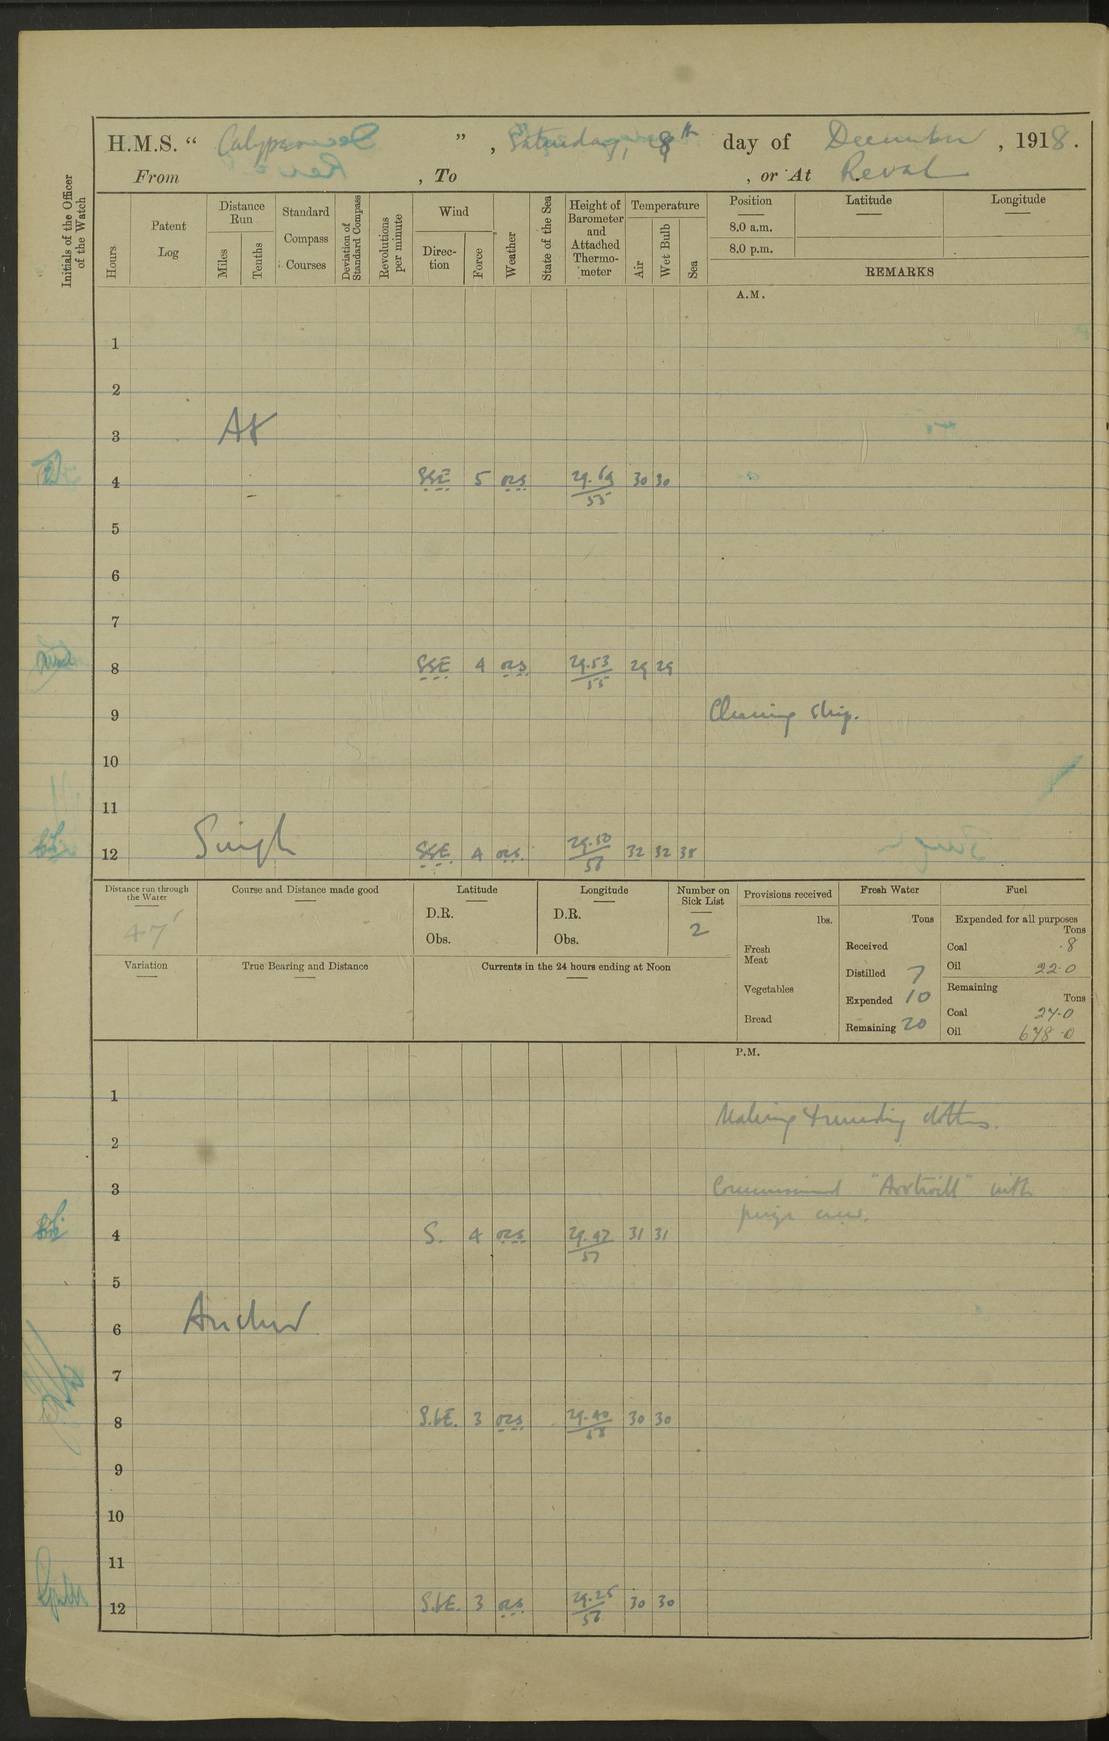 H.M.S. “ Calypso ” , Saturday, 8th day of December , 1918 .
From , To , or At Reval
Initials of the Officer of the Watch
Hours
Patent Log
Distance Run
Miles
Tenths
Standard Compass Courses
Deviation of Standard Compass
Revolutions per minute
Wind
Direction
Force
Weather
State of the Sea
Height of Barometer and Attached Thermometer
Temperature
Air
Wet Bulb
Sea
Position
8.0 a.m.
8.0 p.m.
Latitude
Longitude
REMARKS
A.M.
1
2
3 At
4 SSE 5 ors 29.69/55 30 30
5
6
7
8 SSE 4 ors 29.53/55 29 29
9 Cleaning ship.
10
11
12 Single SSE 4 ors 29.50/56 32 32 35
Distance run through the Water
47
Course and Distance made good
Latitude
D.R.
Obs.
Longitude
D.R.
Obs.
Number on Sick List
2
Provisions received
lbs.
Fresh Meat
Vegetables
Bread
Fresh Water
Tons
Received
Distilled 7
Expended 10
Remaining 20
Fuel
Expended for all purposes
Tons
Coal .8
Oil 22.0
Remaining
Tons
Coal 27.0
Oil 678.0
Variation
True Bearing and Distance
Currents in the 24 hours ending at Noon
P.M.
1 Making & mending clothes.
2
3 Commissioned with
prize crew.
4 S. 4 ors 29.47/57 31 31
5
6 Anchor
7
8 S.bE. 3 ors 29.40/58 30 30
9
10
11
12 S.bE. 3 ors 29.25/56 30 30